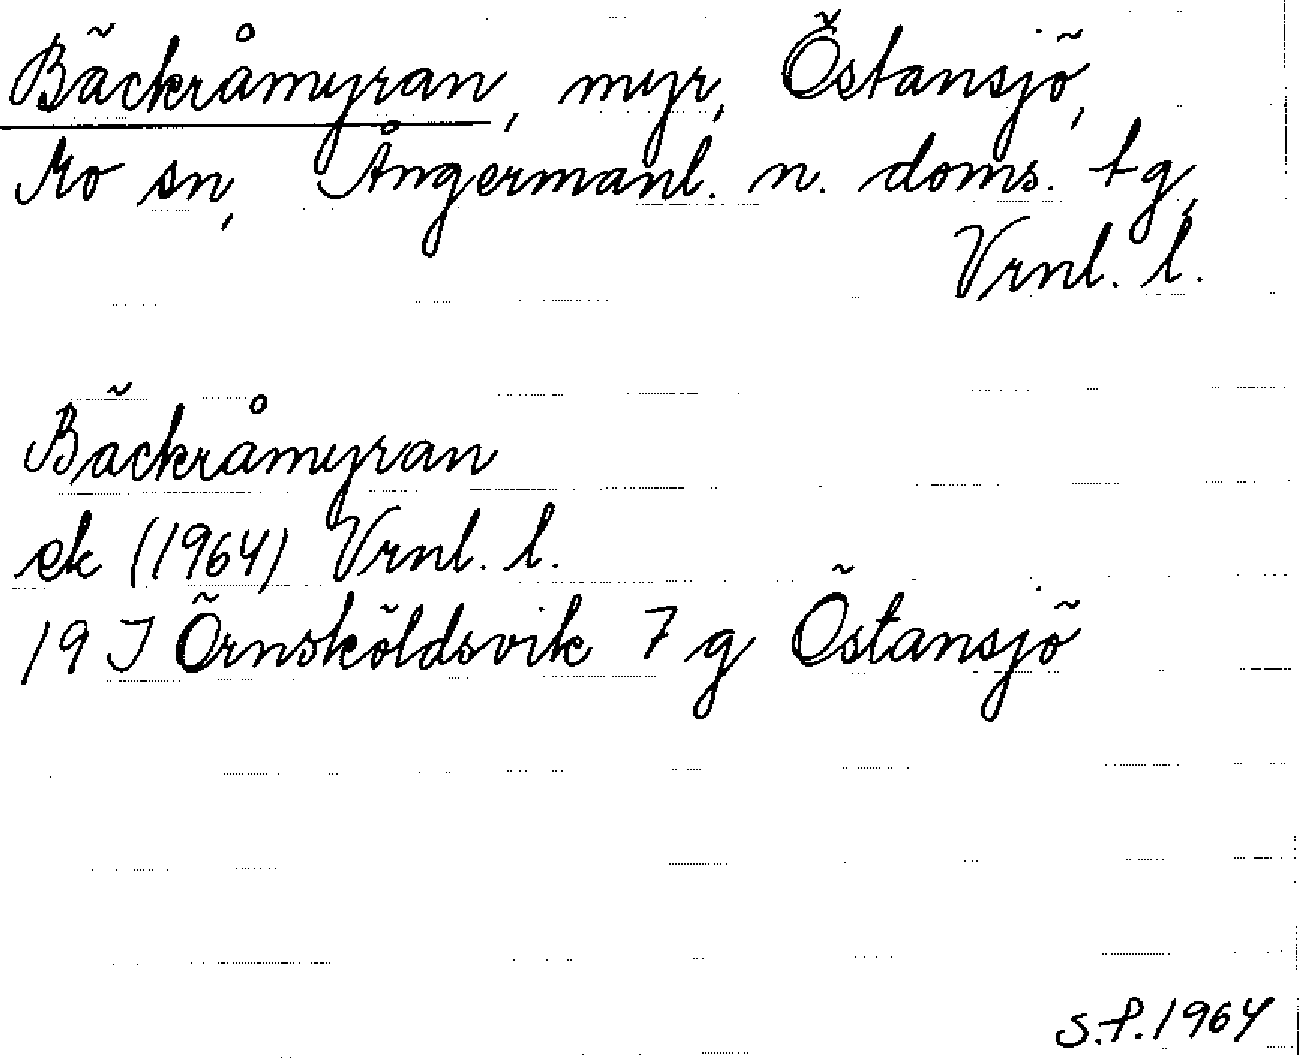 Bäckråmyran, myr, Östansjö,
Mo sn, Ångermanl. n. doms. tg,
Vrnl. l.
Bäckråmyran
ek (1964) Vrnl. l.
19 I Örnsköldsvik 7 g Östansjö
S.P. 1964